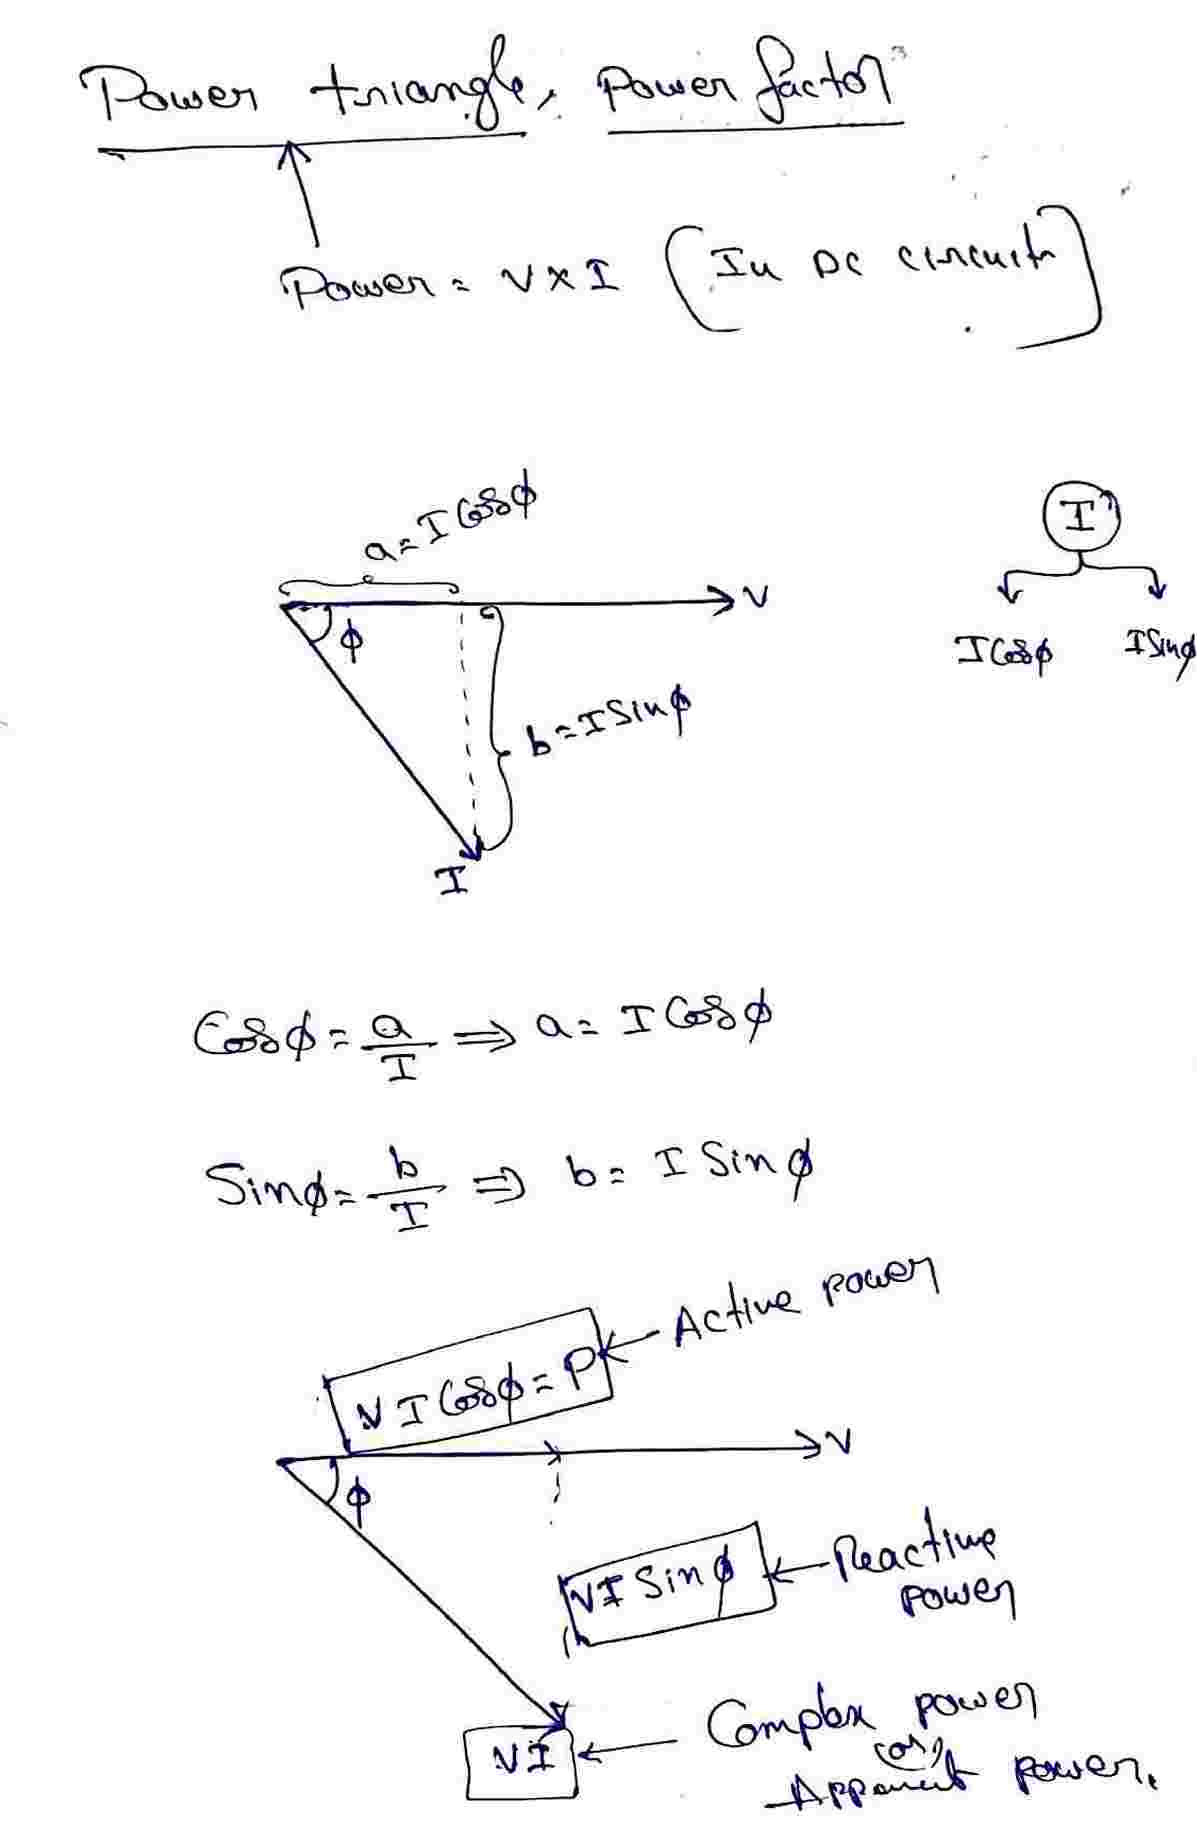 Power triangle, Power factor
Power = V x I (In DC circuits)
a = I Cosϕ
V
ϕ
b = I Sinϕ
I
I
I Cosϕ
I Sinϕ
Cosϕ = a/I ⇒ a = I Cosϕ
Sinϕ = b/I ⇒ b = I Sinϕ
VI Cosϕ = P ← Active power
V
ϕ
VI Sinϕ ← Reactive
power
VI ← Complex power
(or)
Apparent power.